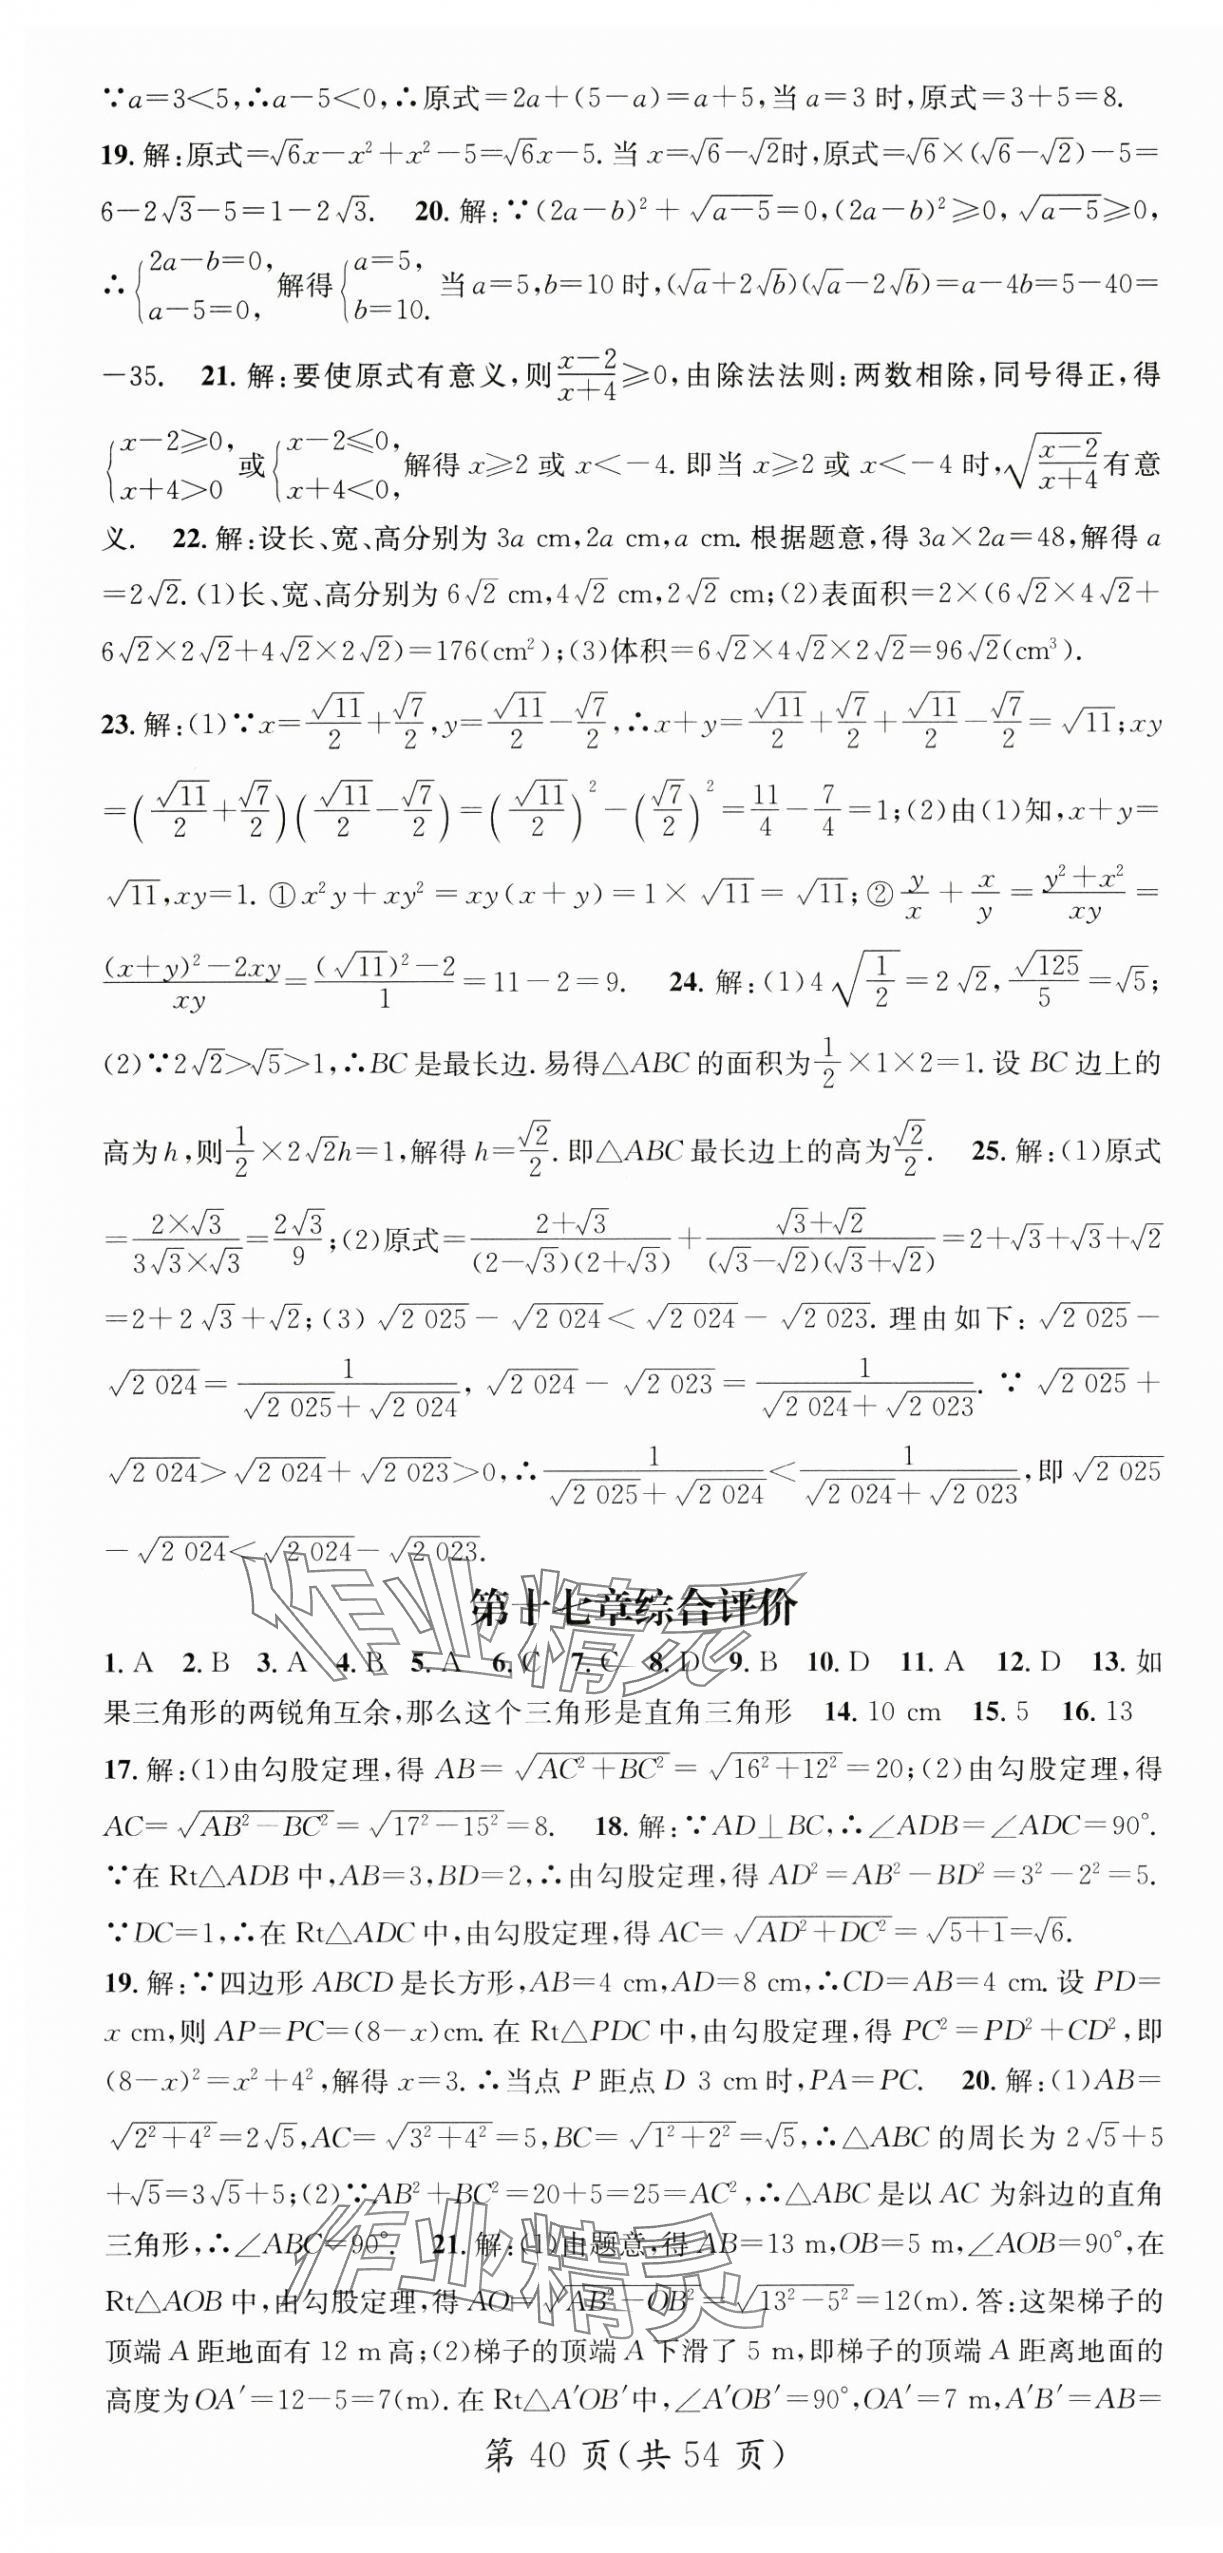 ∵a=3<5,∴a-5<0,∴原式=2a+(5-a)=a+5,当a=3时,原式=3+5=8.
19.解:原式=√6x-x²+x²-5=√6x-5.当x=√6-√2时,原式=√6×(√6-√2)-5=
6-2√3-5=1-2√3. 20.解:∵(2a-b)²+√(a-5)=0,(2a-b)²≥0,√(a-5)≥0,
∴{2a-b=0, a-5=0, 解得{a=5, b=10. 当a=5,b=10时,(√a+2√b)(√a-2√b)=a-4b=5-40=
-35. 21.解:要使原式有意义,则(x-2)/(x+4)≥0,由除法法则:两数相除,同号得正,得
{x-2≥0, x+4>0 或{x-2≤0, x+4<0, 解得x≥2或x<-4.即当x≥2或x<-4时,√((x-2)/(x+4))有意
义. 22.解:设长、宽、高分别为3a cm,2a cm,a cm.根据题意,得3a×2a=48,解得a
=2√2.(1)长、宽、高分别为6√2 cm,4√2 cm,2√2 cm;(2)表面积=2×(6√2×4√2+
6√2×2√2+4√2×2√2)=176(cm²);(3)体积=6√2×4√2×2√2=96√2(cm³).
23.解:(1)∵x=√11/2+√7/2,y=√11/2-√7/2,∴x+y=√11/2+√7/2+√11/2-√7/2=√11;xy
=(√11/2+√7/2)(√11/2-√7/2)=(√11/2)²-(√7/2)²=11/4-7/4=1;(2)由(1)知,x+y=
√11,xy=1.①x²y+xy²=xy(x+y)=1×√11=√11;②y/x+x/y=(y²+x²)/xy=
((x+y)²-2xy)/xy=((√11)²-2)/1=11-2=9. 24.解:(1)4√(1/2)=2√2,√125/5=√5;
(2)∵2√2>√5>1,∴BC是最长边.易得△ABC的面积为1/2×1×2=1.设BC边上的
高为h,则1/2×2√2h=1,解得h=√2/2.即△ABC最长边上的高为√2/2. 25.解:(1)原式
=(2×√3)/(3√3×√3)=2√3/9;(2)原式=(2+√3)/((2-√3)(2+√3))+(√3+√2)/((√3-√2)(√3+√2))=2+√3+√3+√2
=2+2√3+√2;(3)√2 025-√2 024<√2 024-√2 023.理由如下:√2 025-
√2 024=1/(√2 025+√2 024),√2 024-√2 023=1/(√2 024+√2 023).∵√2 025+
√2 024>√2 024+√2 023>0,∴1/(√2 025+√2 024)<1/(√2 024+√2 023),即√2 025
-√2 024<√2 024-√2 023.
第十七章综合评价
1.A 2.B 3.A 4.B 5.A 6.C 7.C 8.D 9.B 10.D 11.A 12.D 13.如
果三角形的两锐角互余,那么这个三角形是直角三角形 14.10 cm 15.5 16.13
17.解:(1)由勾股定理,得AB=√(AC²+BC²)=√(16²+12²)=20;(2)由勾股定理,得
AC=√(AB²-BC²)=√(17²-15²)=8. 18.解:∵AD⊥BC,∴∠ADB=∠ADC=90°.
∵在Rt△ADB中,AB=3,BD=2,∴由勾股定理,得AD²=AB²-BD²=3²-2²=5.
∵DC=1,∴在Rt△ADC中,由勾股定理,得AC=√(AD²+DC²)=√(5+1)=√6.
19.解:∵四边形ABCD是长方形,AB=4 cm,AD=8 cm,∴CD=AB=4 cm.设PD=
x cm,则AP=PC=(8-x)cm.在Rt△PDC中,由勾股定理,得PC²=PD²+CD²,即
(8-x)²=x²+4²,解得x=3.∴当点P距点D 3 cm时,PA=PC. 20.解:(1)AB=
√(2²+4²)=2√5,AC=√(3²+4²)=5,BC=√(1²+2²)=√5,∴△ABC的周长为2√5+5
+√5=3√5+5;(2)∵AB²+BC²=20+5=25=AC²,∴△ABC是以AC为斜边的直角
三角形,∴∠ABC=90°. 21.解:(1)由题意,得AB=13 m,OB=5 m,∠AOB=90°,在
Rt△AOB中,由勾股定理,得AO=√(AB²-OB²)=√(13²-5²)=12(m).答:这架梯子的
顶端A距地面有12 m高;(2)梯子的顶端A下滑了5 m,即梯子的顶端A距离地面的
高度为OA′=12-5=7(m).在Rt△A′OB′中,∠A′OB′=90°,OA′=7 m,A′B′=AB=
第 40 页(共 54 页)
作业精灵
作业精灵